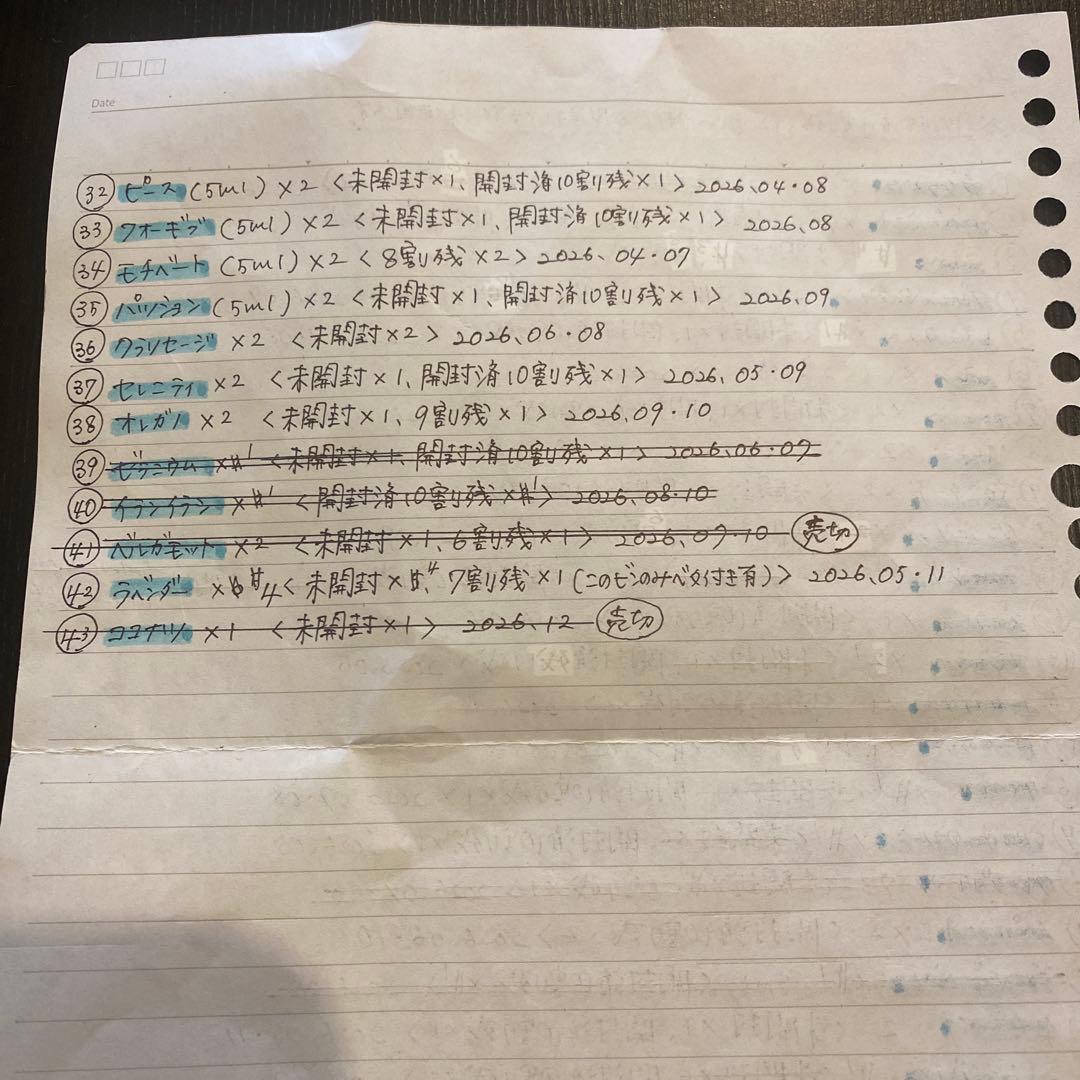 Date
㉜ ピース (5ml) ×2 <未開封×1、開封済10割残×1> 2026.04・08
㉝ フォーギブ (5ml) ×2 <未開封×1、開封済10割残×1> 2026.08
㉞ モチベート (5ml) ×2 <8割残×2> 2026.04・07
㉟ パッション (5ml) ×2 <未開封×1、開封済10割残×1> 2026.09
㊱ クラリセージ ×2 <未開封×2> 2026.06・08
㊲ セレニティ ×2 <未開封×1、開封済10割残×1> 2026.05・09
㊳ オレガノ ×2 <未開封×1、9割残×1> 2026.09・10
㊴ ゼラニウム ×1 <未開封×1、開封済10割残×1> 2026.06・07
㊵ イランイラン ×1 <開封済10割残×1> 2026.08・10
㊶ ベルガモット ×2 <未開封×1、6割残×1> 2026.09・10 売切
㊷ ラベンダー ×4 <未開封×4、7割残×1(このビンのみベタ付き有)> 2026.05・11
㊸ ココナッツ ×1 <未開封×1> 2026.12 売切